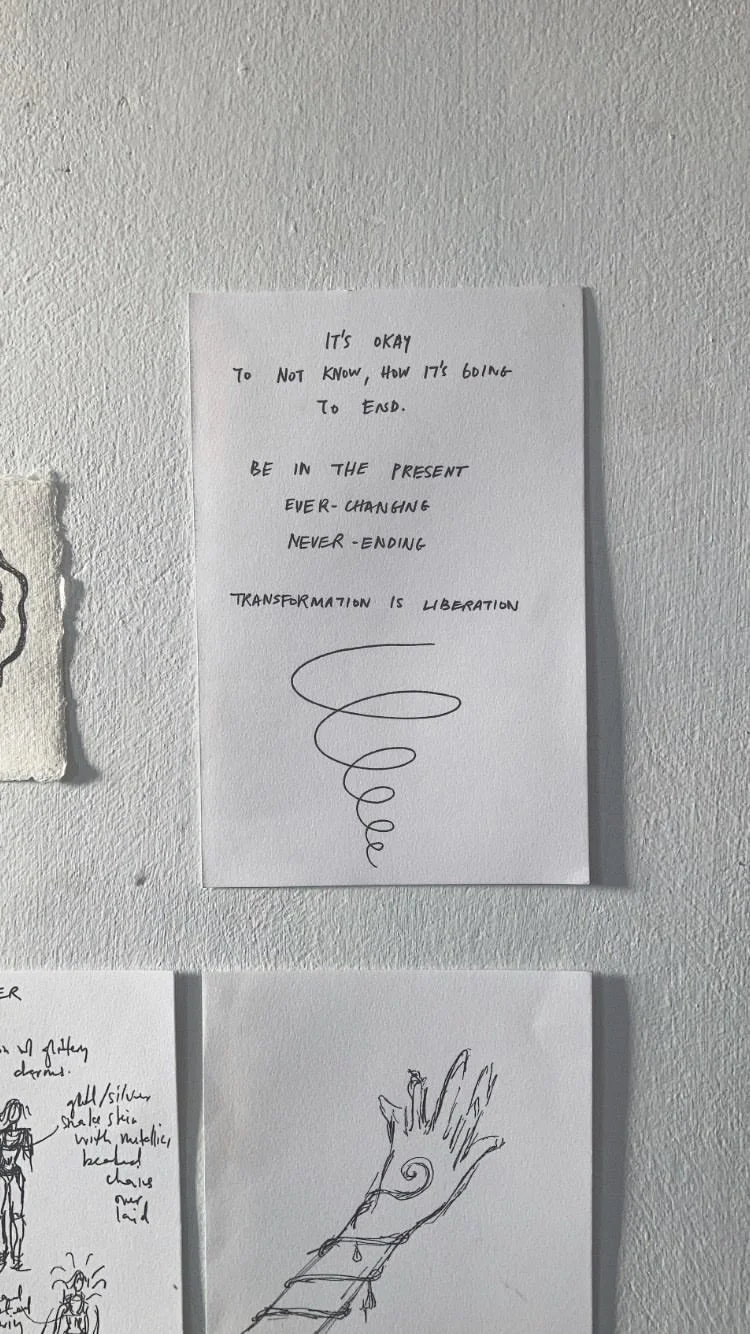 IT'S OKAY
TO NOT KNOW, HOW IT'S GOING
TO END.
BE IN THE PRESENT
EVER-CHANGING
NEVER-ENDING
TRANSFORMATION IS LIBERATION
ER
w/ glittery
charms.
gold/silver
snake skin
with metallic
beaded
chains
over
laid